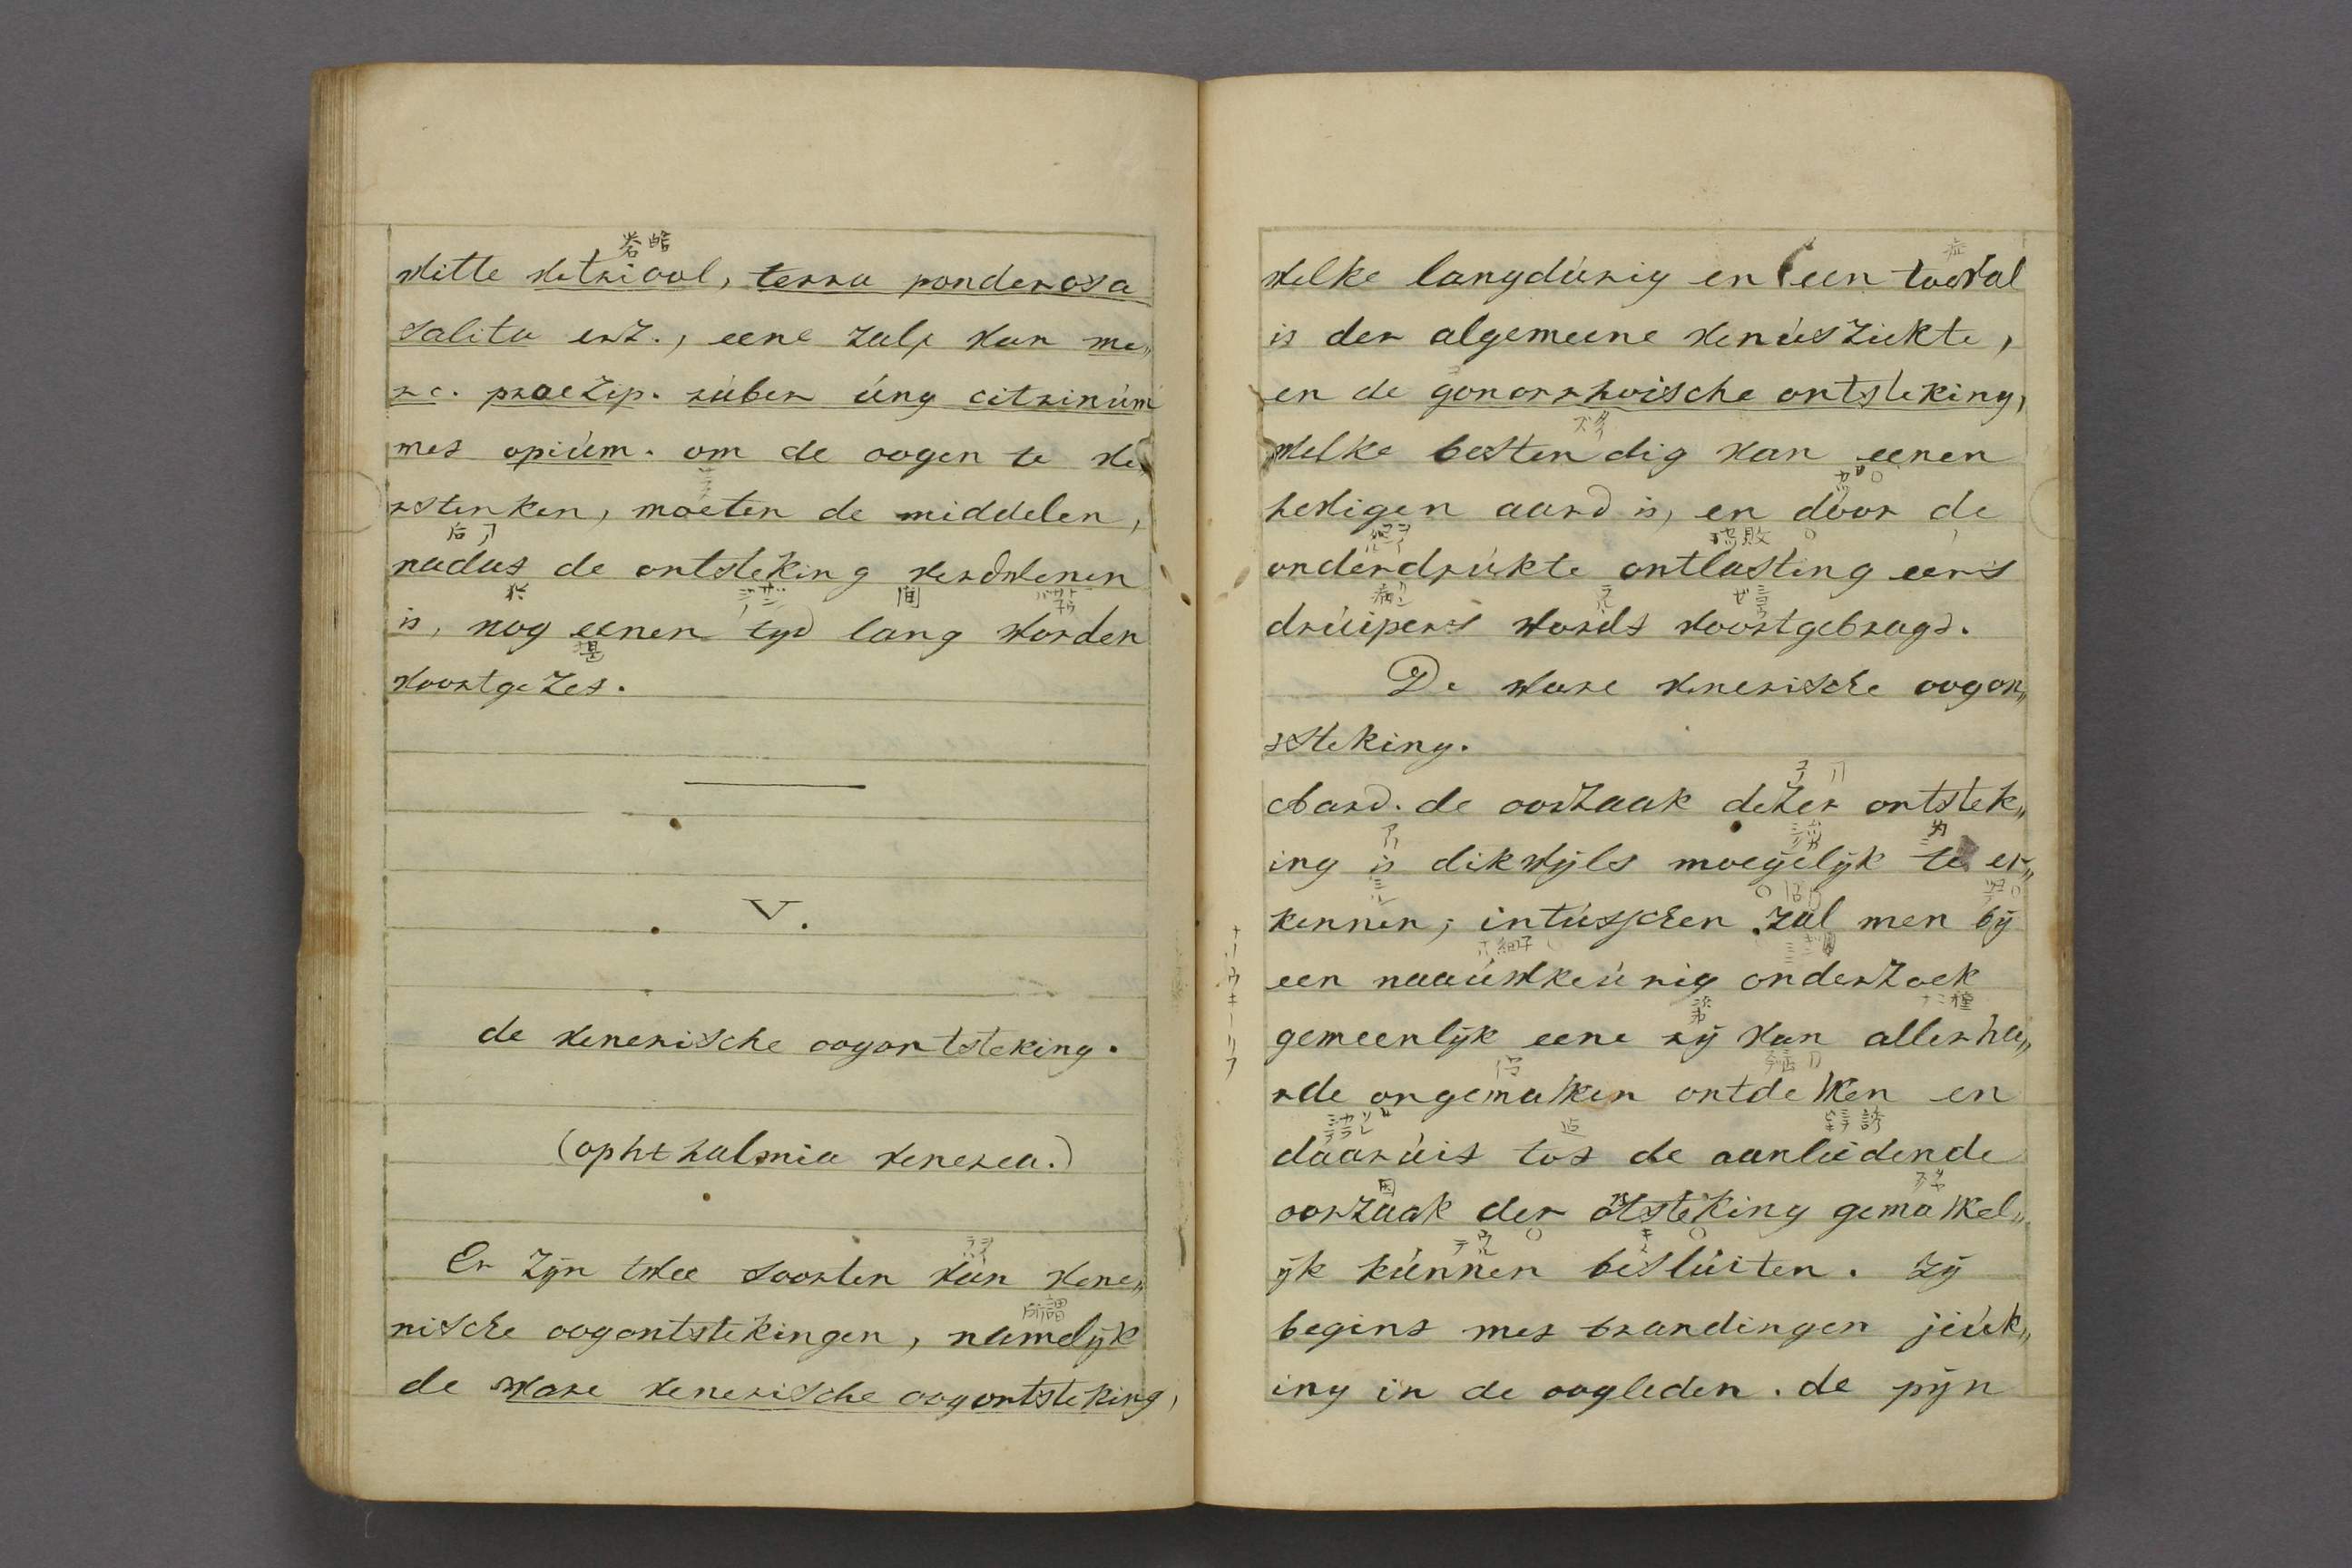 witte vitriool, terra ponderosa
salita enz., eene zalf van me„
rc. praezip. ruber úng citrinúm
met opiúm. om de oogen te ve„
rsterken, moeten de middelen,
nadat de ontsteking verdwenen
is, nog eenen tyd lang worden
voortgezet.
V.
de venerische oogontsteking.
(ophthalmia venerea.)
Er zijn twee soorten van vene„
rische oogontstekingen, namelijk
de ware venerische oogontsteking,
welke langdúrig en een toeval
is der algemeene venúsziekte,
en de gonorrhoische ontsteking,
welke bestendig van eenen
hevigen aard is, en door de
onderdrúkte ontlasting eens
drúipers wordt voortgebragt.
De ware venerische oogon„
tsteking.
Aard. de oorzaak dezer ontstek„
ing is dikwijls moeijelijk te er„
kennen; intússchen zal men bij
een naaúwkeúrig onderzoek
gemeenlijk eene rij van allerha„
nde ongemakken ontdekken en
daarúit tot de aanleidende
oorzaak der otsteking gemakkel„
n
ijk kúnnen beslúiten. zij
begint met brandingen jeúk„
ing in de oogleden. de pijn